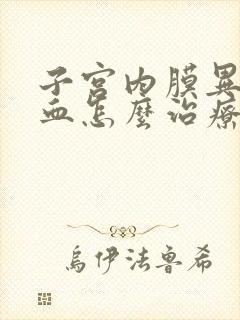 子宫内膜異
血怎麼治療
烏伊法鲁希